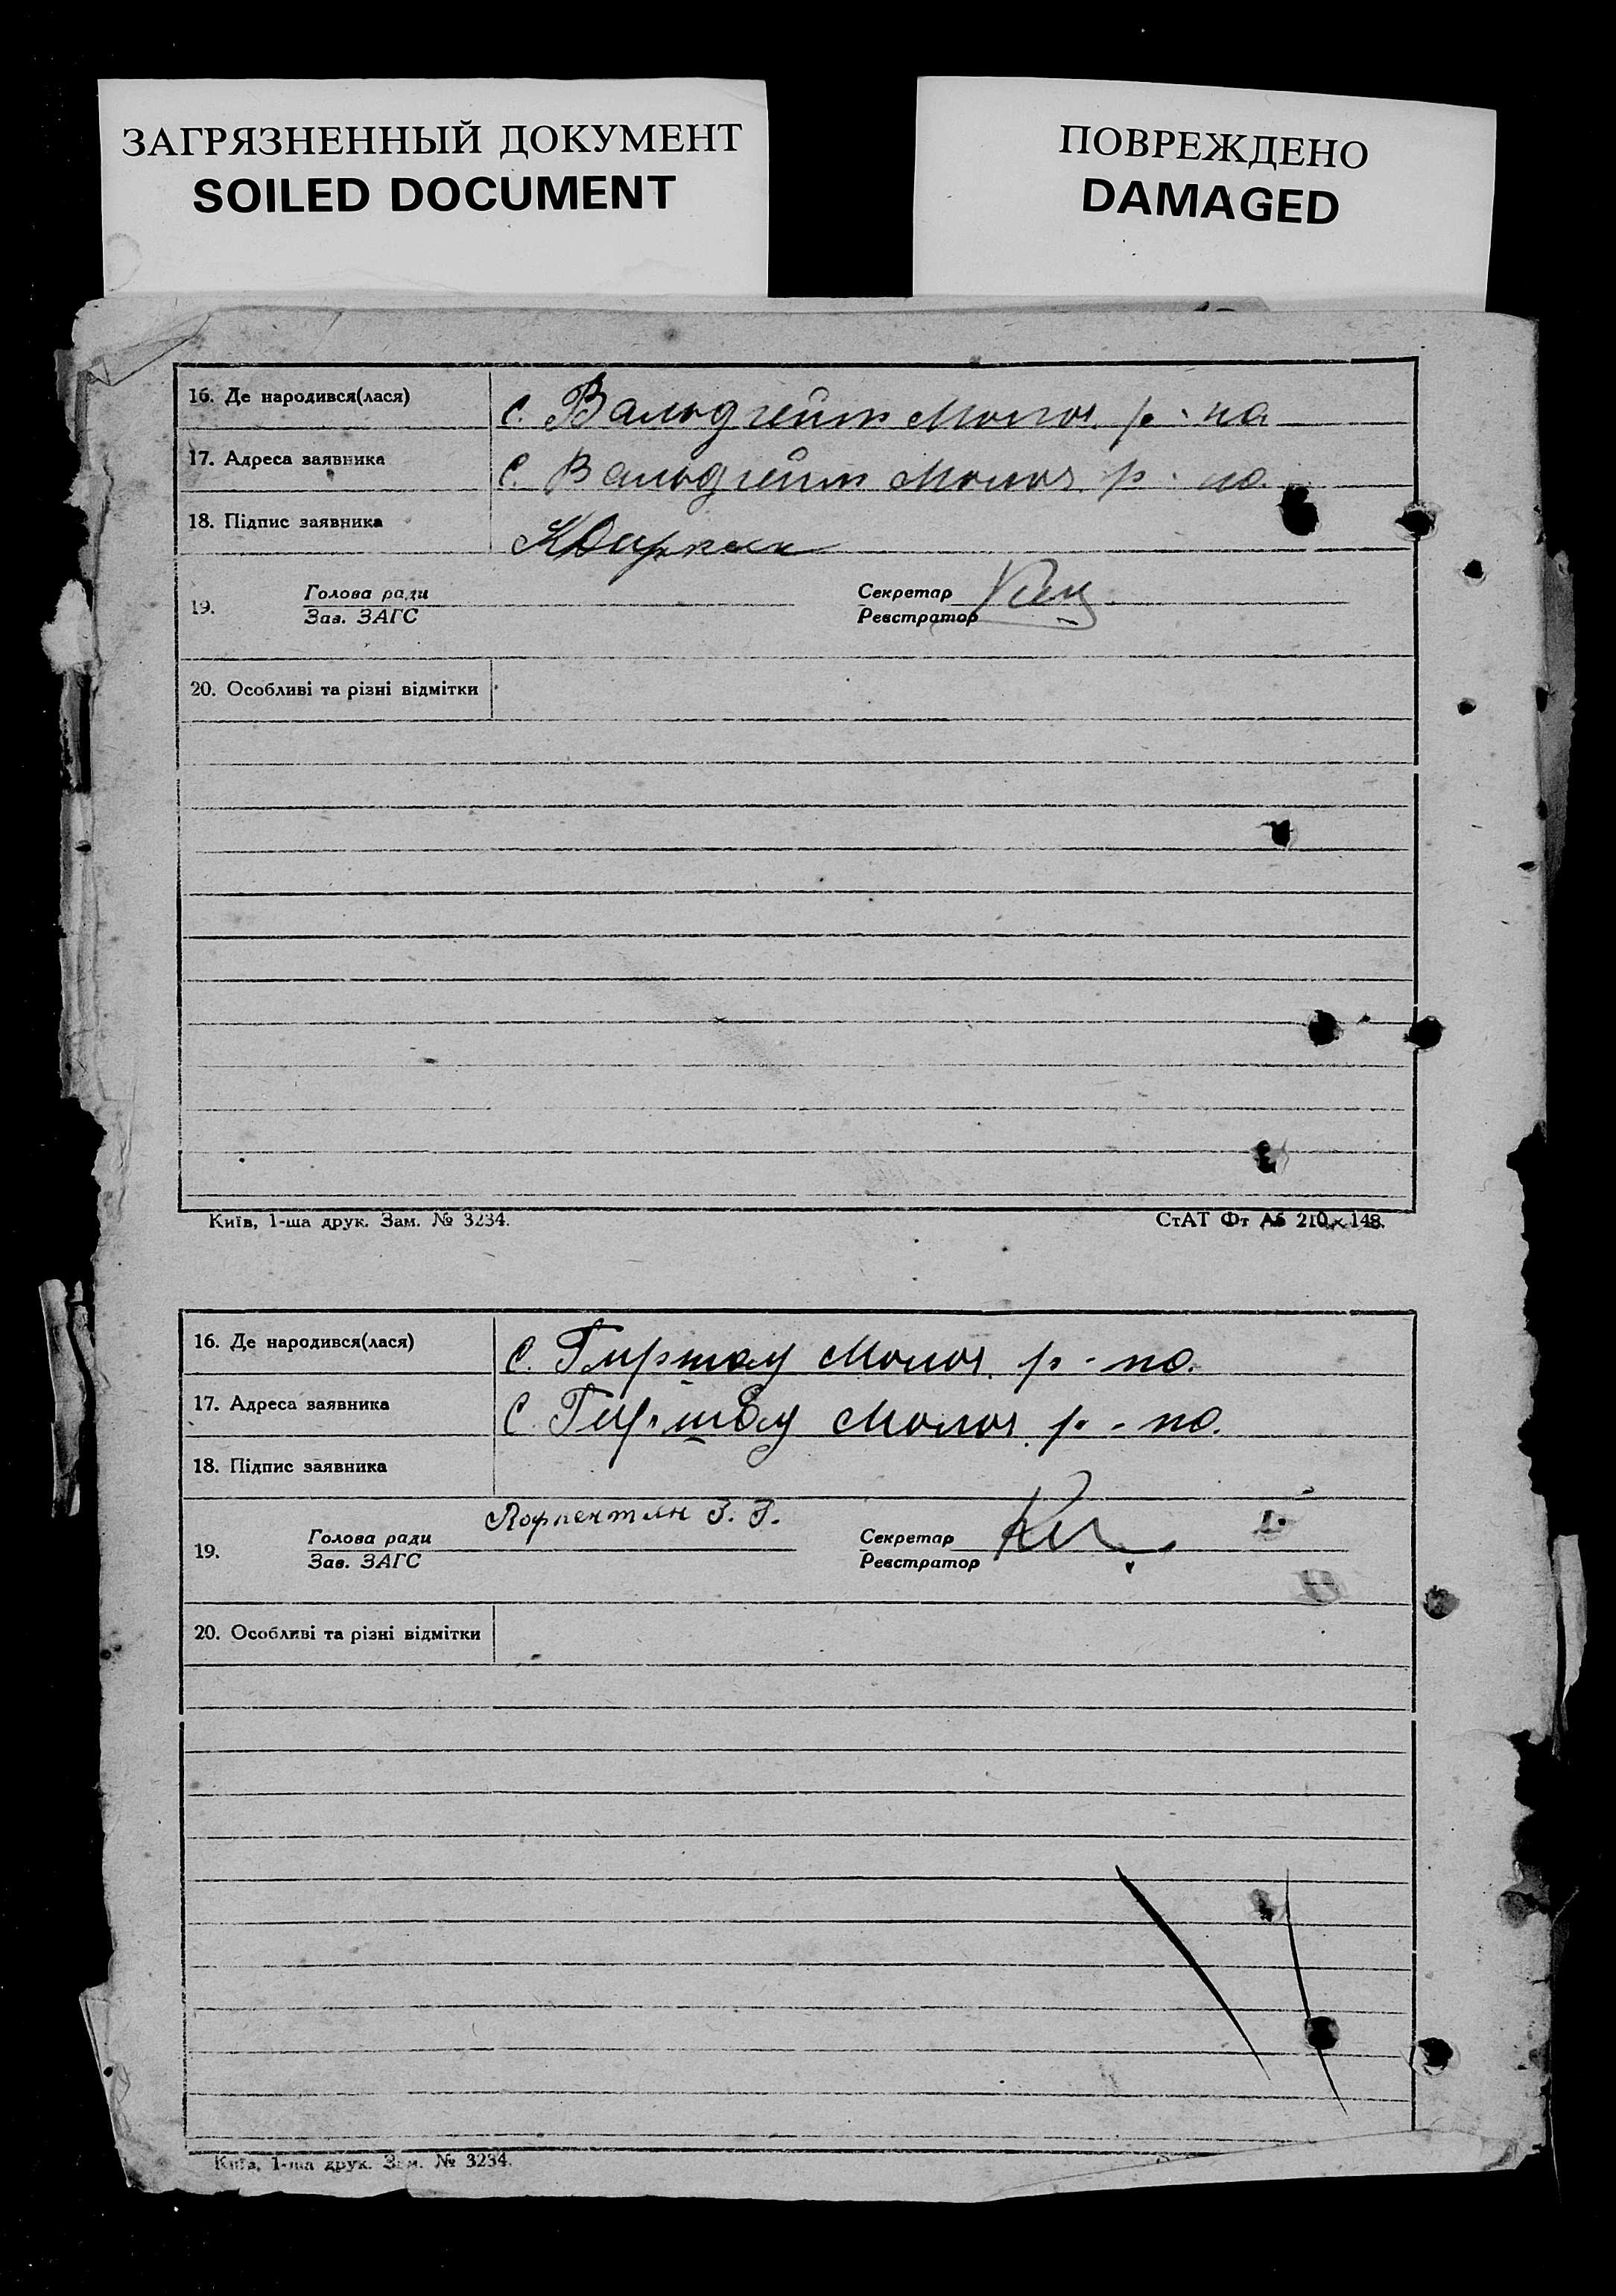 ЗАГРЯЗНЕННЫЙ ДОКУМЕНТ
SOILED DOCUMENT
ПОВРЕЖДЕНО
DAMAGED
16. Де народився(лася) с. Вальдгейм Молоч. р-на
17. Адреса заявника с. Вальдгейм Молоч. р-на
18. Підпис заявника
19. Голова ради Секретар
Зав. ЗАГС Реєстратор
20. Особливі та різні відмітки
Київ, 1-ша друк. Зам. № 3234. СтАТ Фт А5 210×148.
16. Де народився(лася) с. Гиршау Молоч. р-на.
17. Адреса заявника с. Гиршау Молоч. р-на.
18. Підпис заявника
19. Голова ради Секретар
Зав. ЗАГС Реєстратор
20. Особливі та різні відмітки
Київ, 1-ша друк. Зам. № 3234.